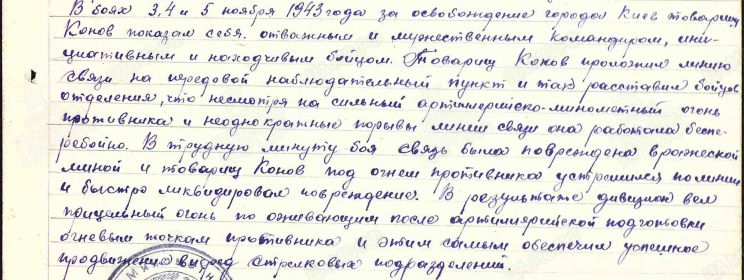 В боях 3, 4 и 5 ноября 1943 года за освобождение города Киев товарищ
Конов показал себя отважным и мужественным командиром, ини-
циативным и находчивым бойцом. Товарищ Конов проложил линию
связи на передовой наблюдательный пункт и так расставил бойцов
отделения, что несмотря на сильный артиллерийско-минометный огонь
противника и неоднократные порывы линии связи она работала беспе-
ребойно. В трудную минуту боя связь была повреждена вражеской
миной и товарищ Конов под огнем противника устремился по линии
и быстро ликвидировал повреждение. В результате дивизион вел
прицельный огонь по оживающим после артиллерийской подготовки
огневым точкам противника и этим самым обеспечил успешное
продвижение вперед стрелковых подразделений.